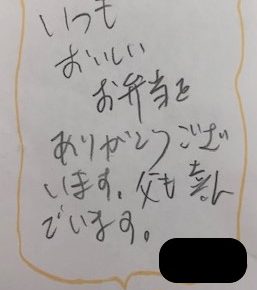 いつも
おいしい
お弁当を
ありがとうござい
います。父も喜ん
でいます。